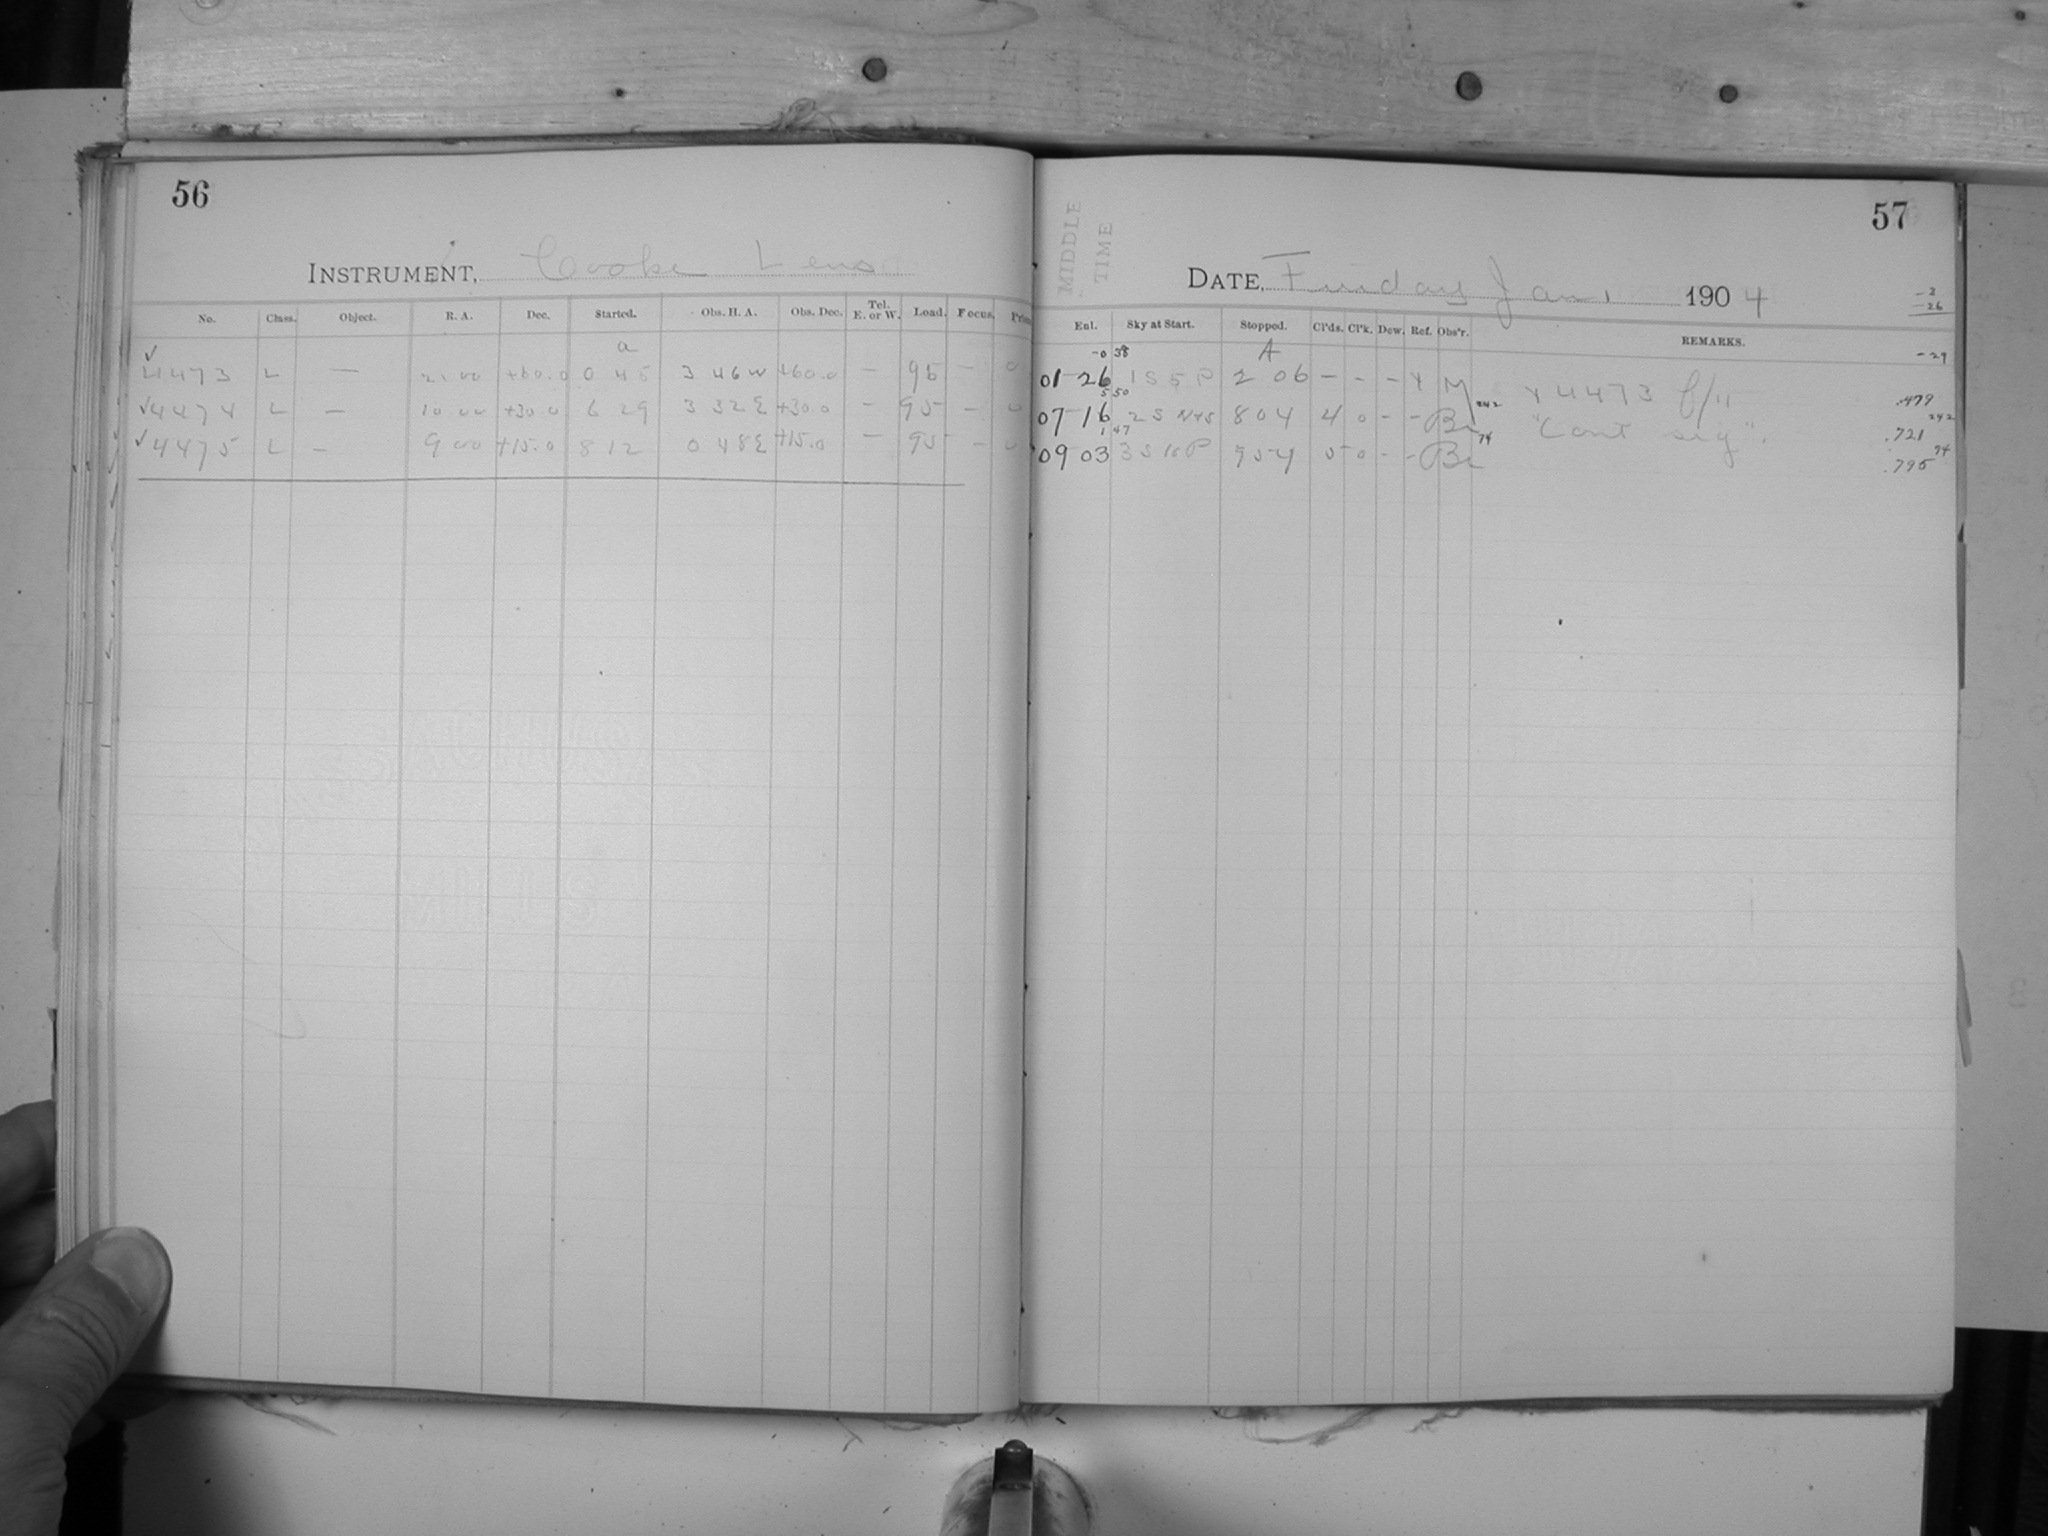 56
INSTRUMENT, Cooke Lens
No. Class. Object. R. A. Dec. Started. Obs. H. A. Obs. Dec. Tel. E. or W. Load. Focus.
a
✓
4473 L — 21 00 +60.0 0 45 3 46 W +60.0 — 95 — 0
✓4474 L — 10 00 +30 0 6 29 3 32 E +30.0 — 95 — 0
✓4475 L — 9 00 +15.0 8 12 0 48 E +15.0 — 95 — 0
57
MIDDLE
TIME
DATE, Friday Jan 1 1904
-3
-26
-29
Ent. Sky at Start. Stopped. Cl'ds. Cl'k. Dew. Ref. Obs'r. REMARKS.
-0 38 A
01 26 1 S 5 P 2 06 — - - x M x 4473 f/11 .479
5 50 242 242
07 16 2 S 804 4 0 - - Bi "Cont sig". .721
1 47 74 74
09 03 3 S 10 P 954 5 0 - - Bi .795